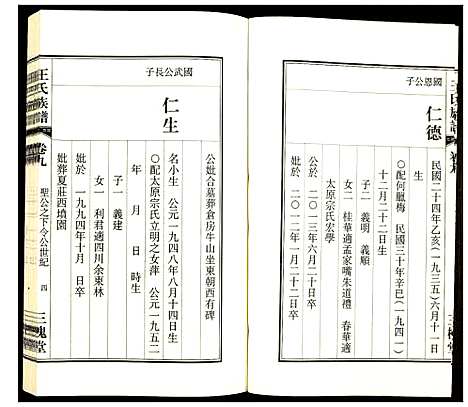 國恩公子
仁德
民國二十四年乙亥(一九三五)六月十一日
生
○配何臘梅 民國三十年辛巳(一九四一)
十二月二十二日生
子二 義明 義順
女二 桂華適孟家嘴朱道禮 春華適
太原宗氏宏學
公於 二○一三年六月二十日卒
妣於 二○一二年一月二十日卒
公妣合墓葬倉房牛山坐東朝西有碑
國武公長子
仁生
名小生 公元一九四八年八月十四日生
○配太原宗氏立明之女萍 公元一九五二
年 月 日 時生
子一 義建
女一 利君適四川余東林
妣於 一九九四年十月 日卒
妣葬夏莊西墳園
王氏族譜
卷九
聖公之下令公世紀
四
三槐堂